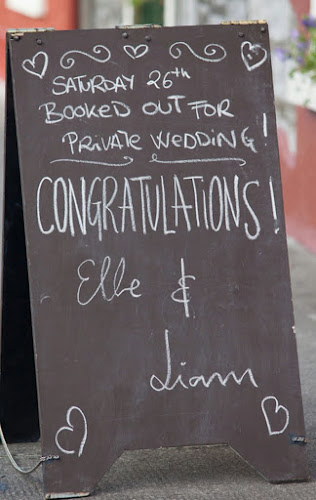 SATURDAY 26th
BOOKED OUT FOR
PRIVATE WEDDING!
CONGRATULATIONS!
Elle &
Liam